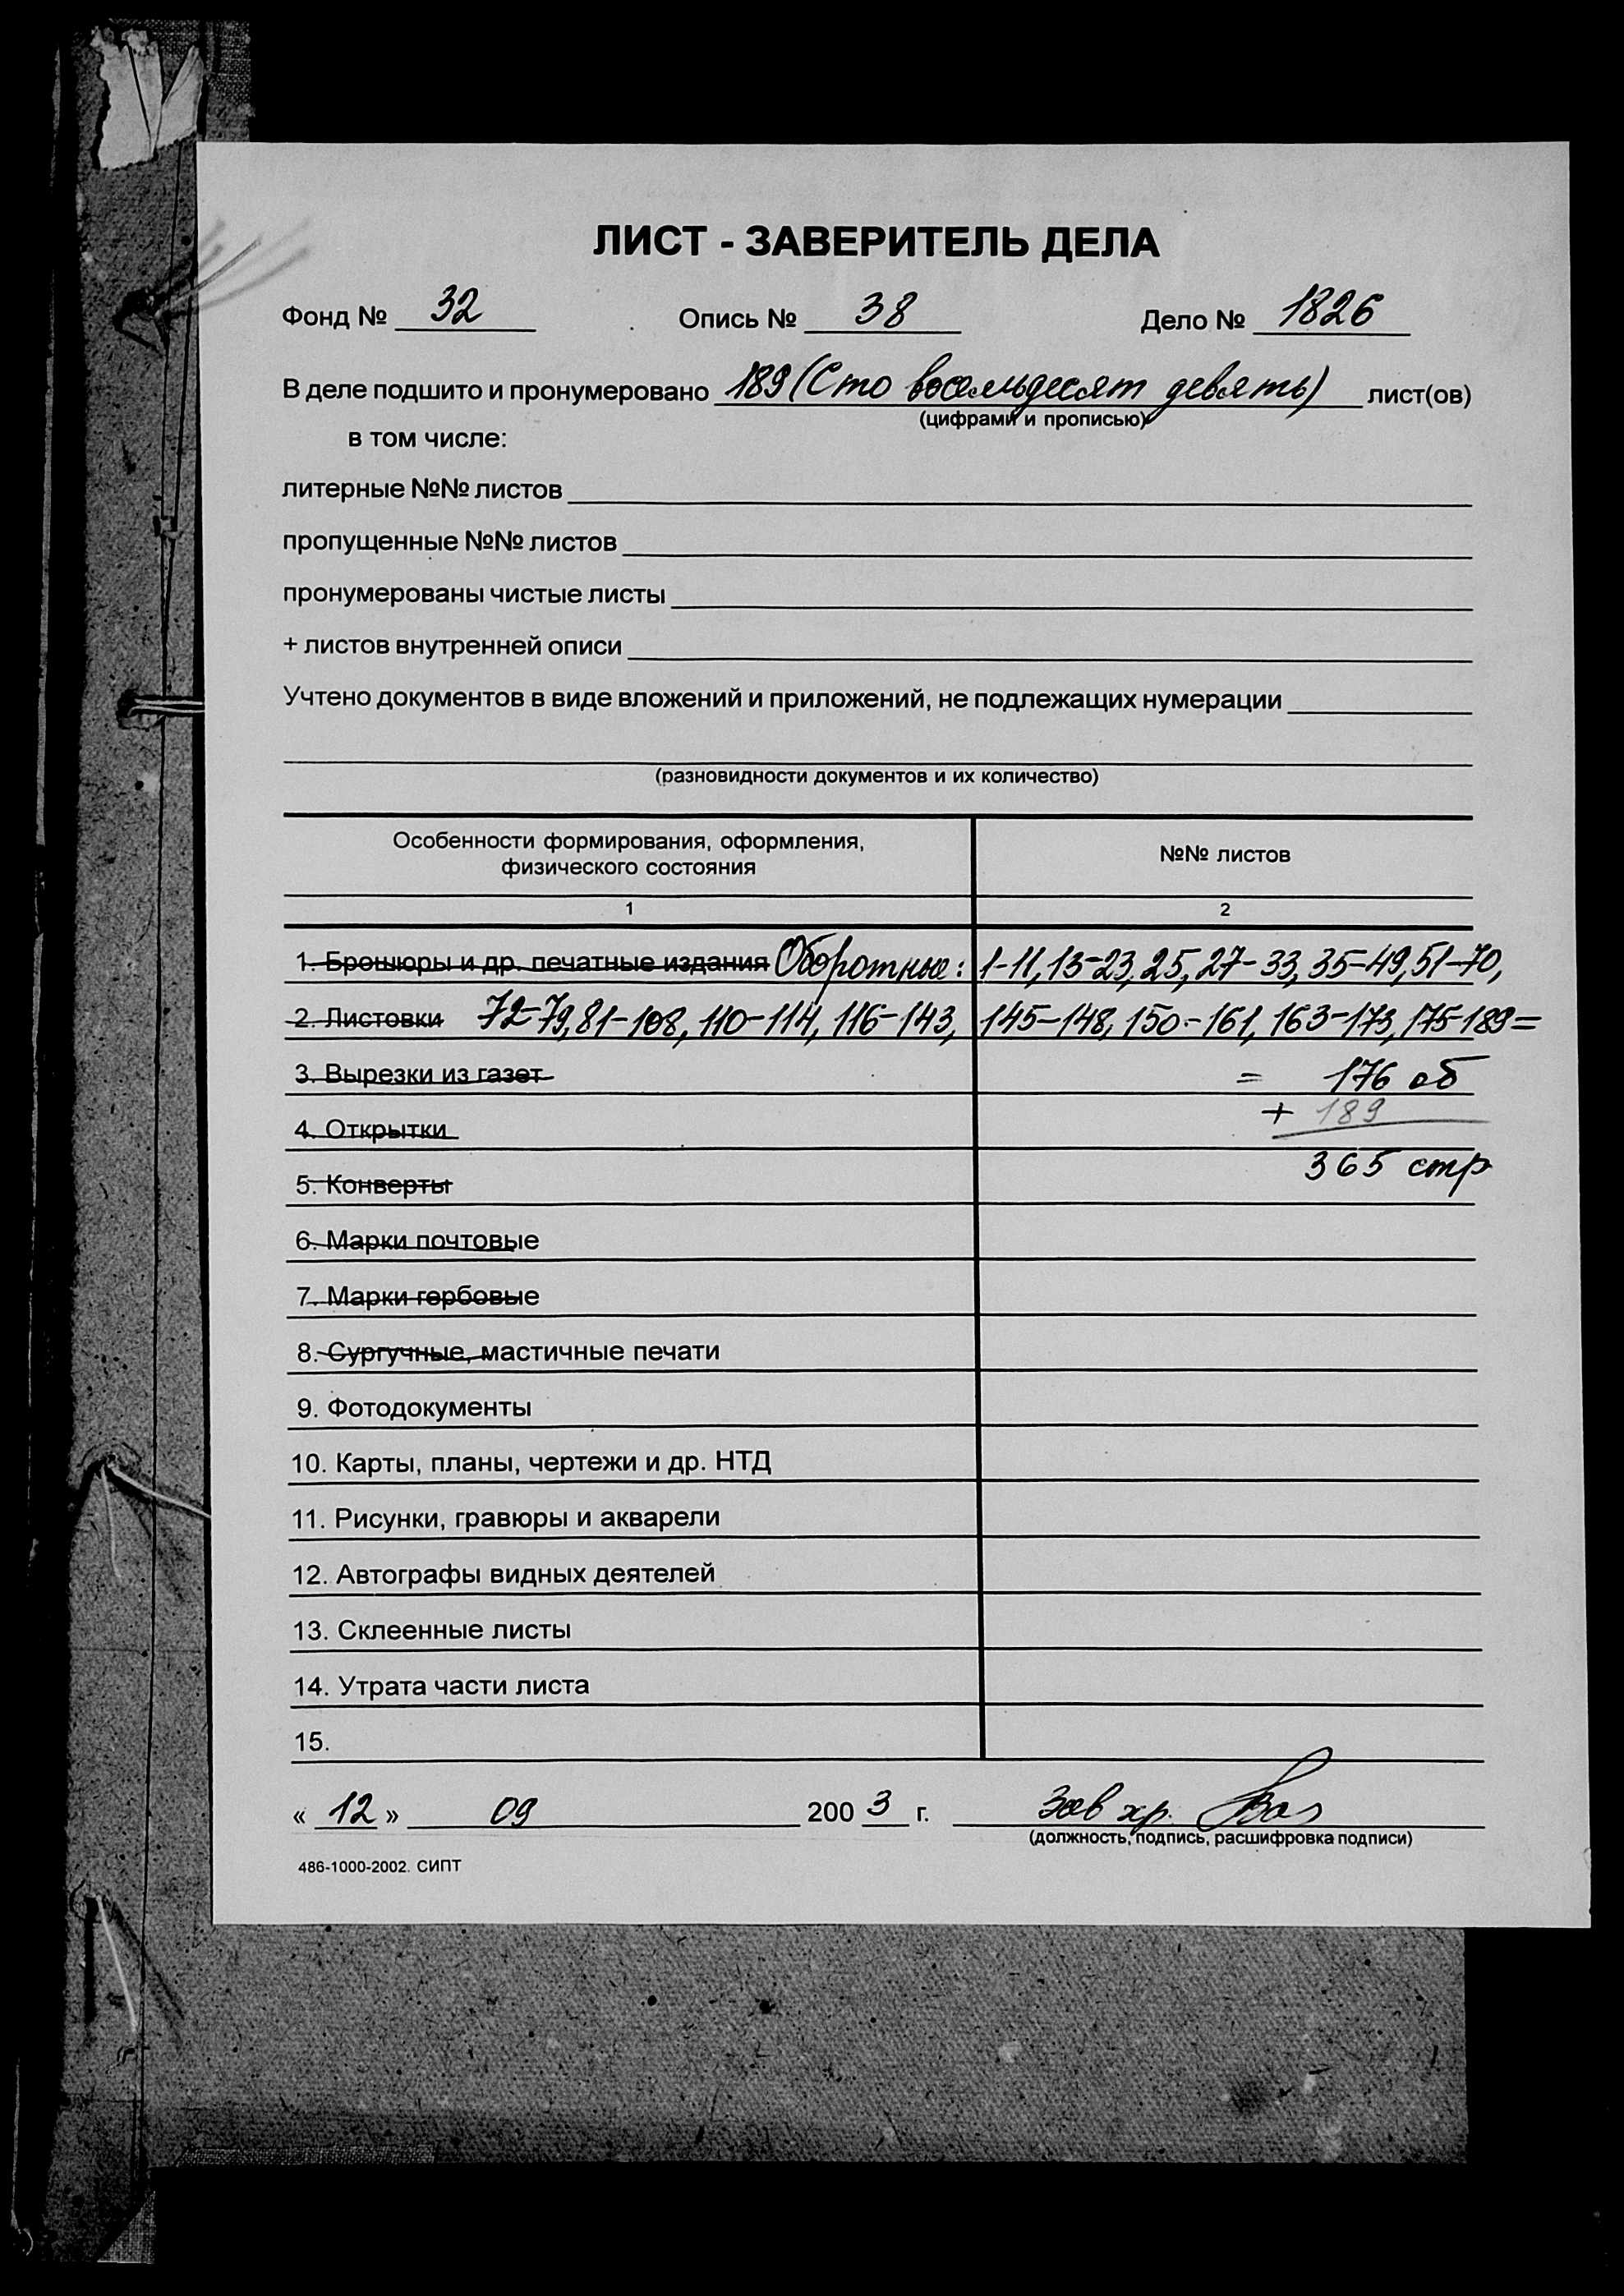 ЛИСТ - ЗАВЕРИТЕЛЬ ДЕЛА
Фонд № 32 Опись № 38 Дело № 1826
В деле подшито и пронумеровано 189 (Сто восемьдесят девять) лист(ов)
(цифрами и прописью)
в том числе:
литерные №№ листов
пропущенные №№ листов
пронумерованы чистые листы
+ листов внутренней описи
Учтено документов в виде вложений и приложений, не подлежащих нумерации
(разновидности документов и их количество)
Особенности формирования, оформления,
физического состояния
№№ листов
1 2
1. Брошюры и др. печатные издания Оборотные: 1-11, 13-23, 25, 27-33, 35-49, 51-70,
2. Листовки 72-79, 81-108, 110-114, 116-143, 145-148, 150-161, 163-173, 175-189=
3. Вырезки из газет = 176 об
+ 189
4. Открытки
365 стр
5. Конверты
6. Марки почтовые
7. Марки гербовые
8. Сургучные, мастичные печати
9. Фотодокументы
10. Карты, планы, чертежи и др. НТД
11. Рисунки, гравюры и акварели
12. Автографы видных деятелей
13. Склеенные листы
14. Утрата части листа
15.
« 12 » 09 200 3 г. Зав хр.
(должность, подпись, расшифровка подписи)
486-1000-2002. СИПТ